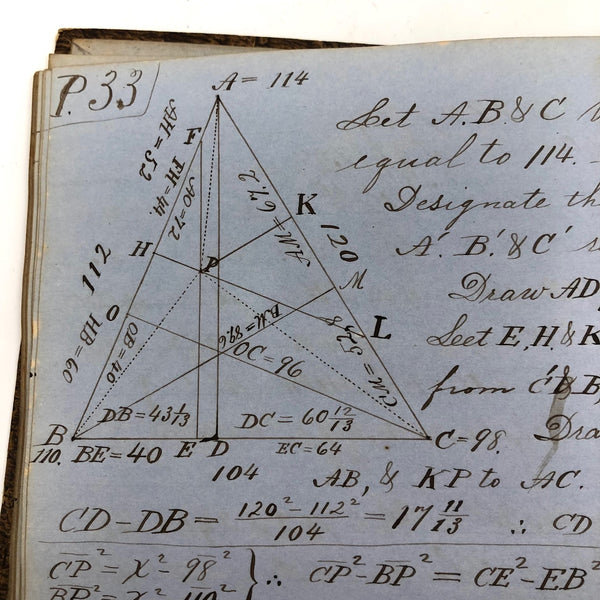 P. 33
A = 114
AH = 52
FH = 44.
AO = 72
112
HB = 60
OB = 40
F
H
O
P
K
120
AM = 67,2
M
L
BM = 89,6
OC = 96
CM = 52,8
DB = 43 1/13
DC = 60 12/13
B
110.
BE = 40
E
D
EC = 64
C = 98.
104
Let A. B. & C
equal to 114.
Designate th
A'. B'. & C'
Draw AD,
Let E, H, & K
from C' B' B,
Dra
AB, & KP to AC.
CD – DB = (120² – 112²)/104 = 17 11/13 ∴ CD
CP² = x² – 98² } ∴ CP² – BP² = CE² – EB²
BP² = x² – 110²